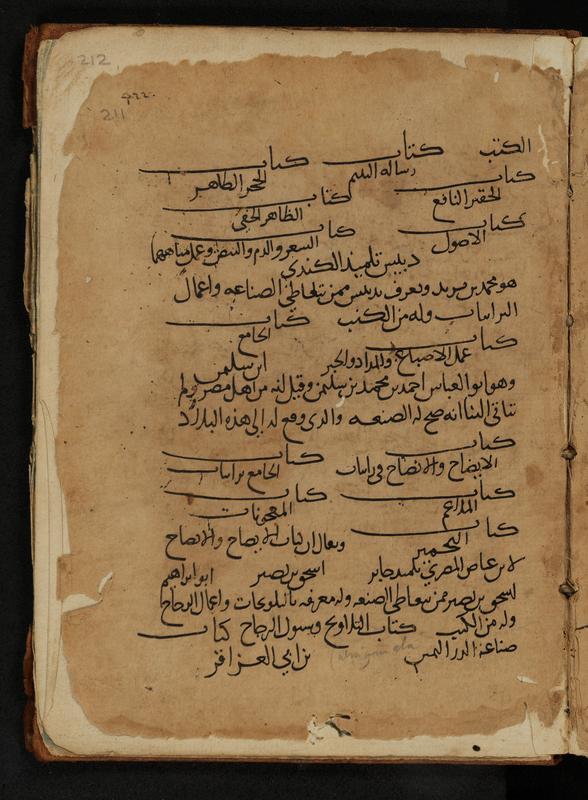 212
422
211
الكتب كتاب رسالة اليتيم كتاب الحجر الطاهر
كتاب الحقير النافع كتاب الظاهر الخفي
كتاب الاصول كتاب الشعر والدم والبيض وعمل مياههما
دبيس تلميذ الكندي
هو محمد بن يزيد ويعرف بدبيس ممن يتعاطى الصناعه واعمال
البرانيات وله من الكتب كتاب الجامع
كتاب عمل الاصباغ والمداد والحبر ابن سليمن
وهو ابو العباس احمد بن محمد بن سليمن وقيل انه من اهل مصر ولم
يتاتى الينا انه صح له الصنعه والذي وقع له الى هذه البلاد
كتاب الايضاح والافصاح في برانيات كتاب الجامع برانيات
كتاب الملاغم كتاب المعجونات
كتاب التخمير ويقال ان كتاب الايضاح والافصاح
لابن عياض المصري تلميذ جابر اسحق بن نصير ابو ابراهيم
اسحق بن نصير ممن يتعاطى الصنعه وله معرفه بالتلويحات واعمال الزجاج
وله من الكتب كتاب التلاويح وسيول الزجاج كتاب
صناعة الدر الثمين بن ابي العزاقر